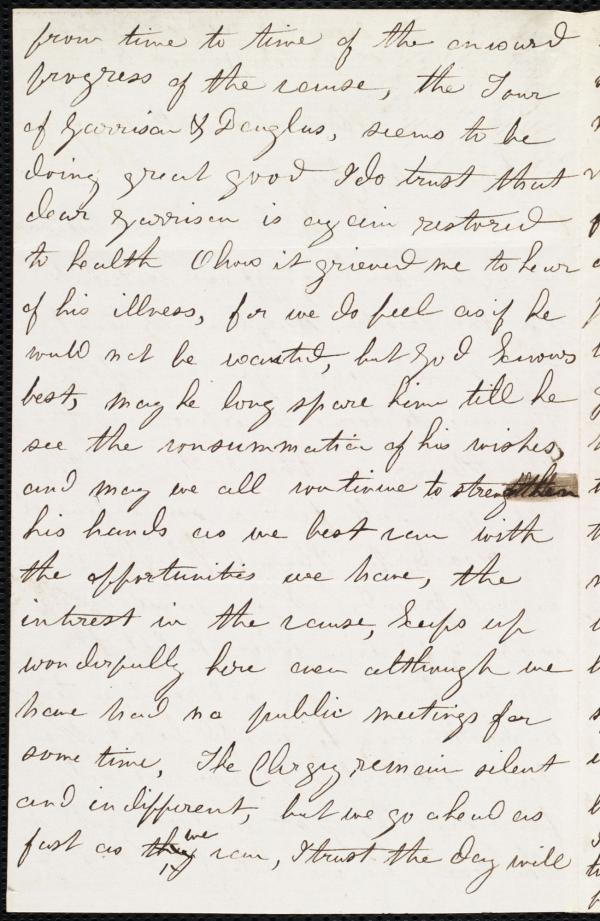 from time to time of the onward
progress of the cause, the Tour
of Garrison & Douglas, seems to be
doing great good I do trust that
dear Garrison is again restored
to health Oh how it grieved me to hear
of his illness, for we do feel as if he
could not be wanted, but God knows
best, may he long spare him till he
see the consummation of his wishes,
and may we all continue to strengthen
his hands as we best can with
the opportunities we have, the
interest in the cause, keeps up
wonderfully here even although we
have had no public meetings for
some time, The Clergy, remain silent
and indifferent, but we go ahead as
fast as we can, I trust the day will